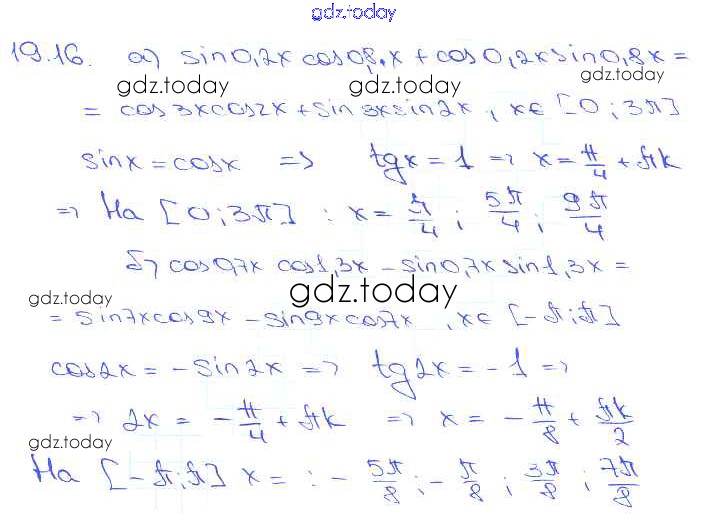 gdz.today
19.16. а) sin0,2x cos0,8x + cos0,2x sin0,8x =
gdz.today gdz.today
= cos3xcos2x + sin3xsin2x , x∈ [0 ; 3π]
sinx = cosx => tgx = 1 => x = π/4 + πk
=> На [0 ; 3π] : x = π/4 ; 5π/4 ; 9π/4
б) cos0,7x cos1,3x – sin0,7x sin1,3x =
gdz.today gdz.today
= sin7xcos9x – sin9xcos7x , x∈ [-π ; π]
cos2x = – sin2x => tg2x = – 1 =>
=> 2x = – π/4 + πk => x = – π/8 + πk/2
gdz.today gdz.today
На [-π ; π] x = : – 5π/8 ; – π/8 ; 3π/8 ; 7π/8